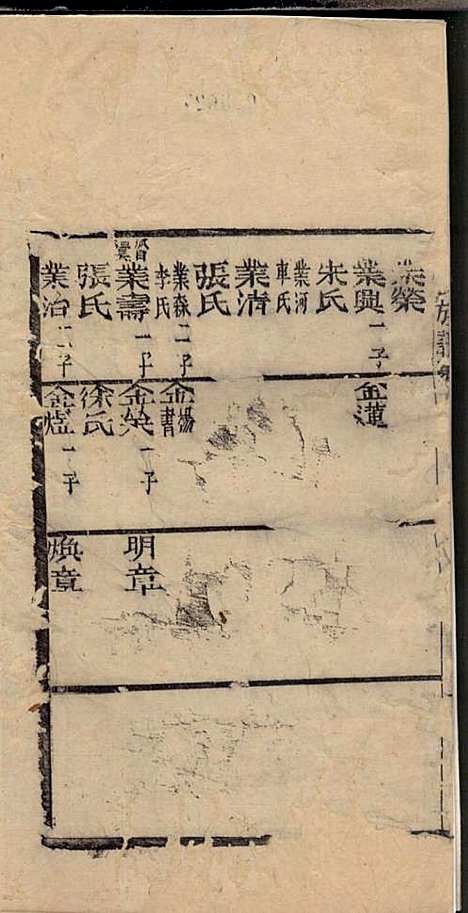 業榮
業興一子
朱氏
業河
車氏
業清
張氏
業森二子
李氏
業壽一子
張氏
業治二子
金蓮
金楊
金書
金榮一子
徐氏
金煜一子
明章
煥章